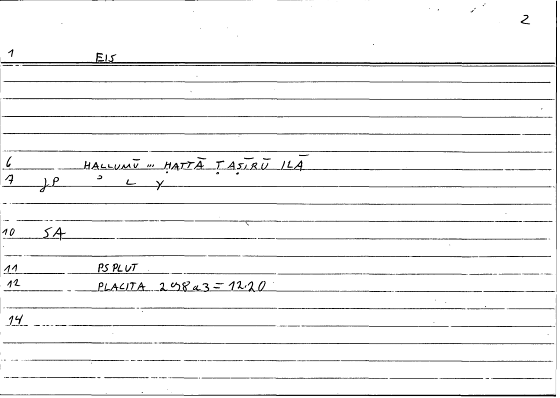 2
1 EIS
6 HALLUMŪ ... ḤATTĀ ṬAṢĪRŪ ILĀ
7 JP ᵓ L Y
10 SA
11 PSPLUT
12 PLACITA 298a3 = 12.20
14